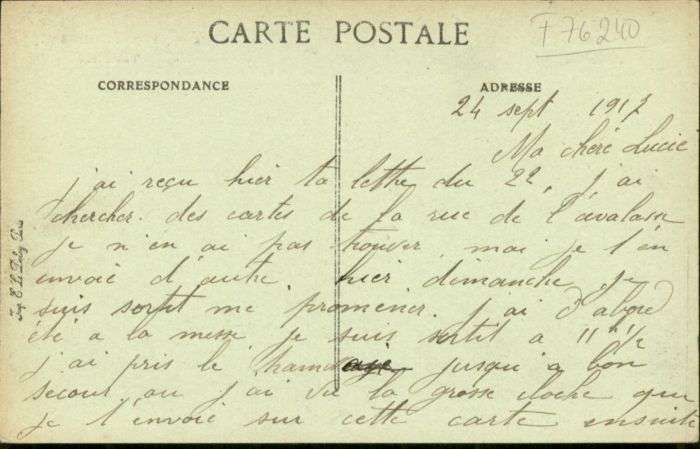 CARTE POSTALE
T 76240
CORRESPONDANCE
ADRESSE
24 sept 1917
Ma chère Lucie
j'ai reçu hier ta lettre du 22, j'ai
chercher des cartes de la rue de l'avalasse
je n'en ai pas trouver mai je t'en
envoie d'autre. hier dimanche je
suis sortit me promener. j'ai d'abord
été a la messe je suis sortit a 11" ½
j'ai pris le jusqu'a bon
secour ou j'ai vu la grosse cloche que
je t'envoie sur cette carte ensuite